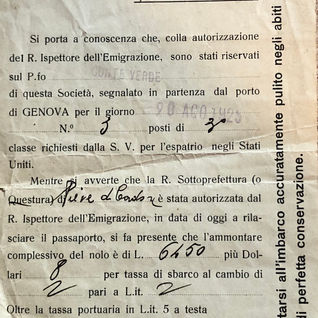 Si porta a conoscenza che, colla autorizzazione
del R. Ispettore dell'Emigrazione, sono stati riservati
sul P.fo CONTE VERDE
di questa Società, segnalato in partenza dal porto
di GENOVA per il giorno 20 AGO 1923
N.º 3 posti di 3ª
classe richiesti dalla S. V. per l'espatrio negli Stati
Uniti.
Mentre si avverte che la R. Sottoprefettura (o
Questura) Pieve di Cadore è stata autorizzata dal
R. Ispettore dell'Emigrazione, in data di oggi a rila-
sciare il passaporto, si fa presente che l'ammontare
complessivo del nolo è di L. 6450 più Dol-
lari 8 per tassa di sbarco al cambio di
2 pari a L.it. 2
Oltre la tassa portuaria in L.it. 5 a testa
tarsi all'imbarco accuratamente pulito negli abiti
di perfetta conservazione.